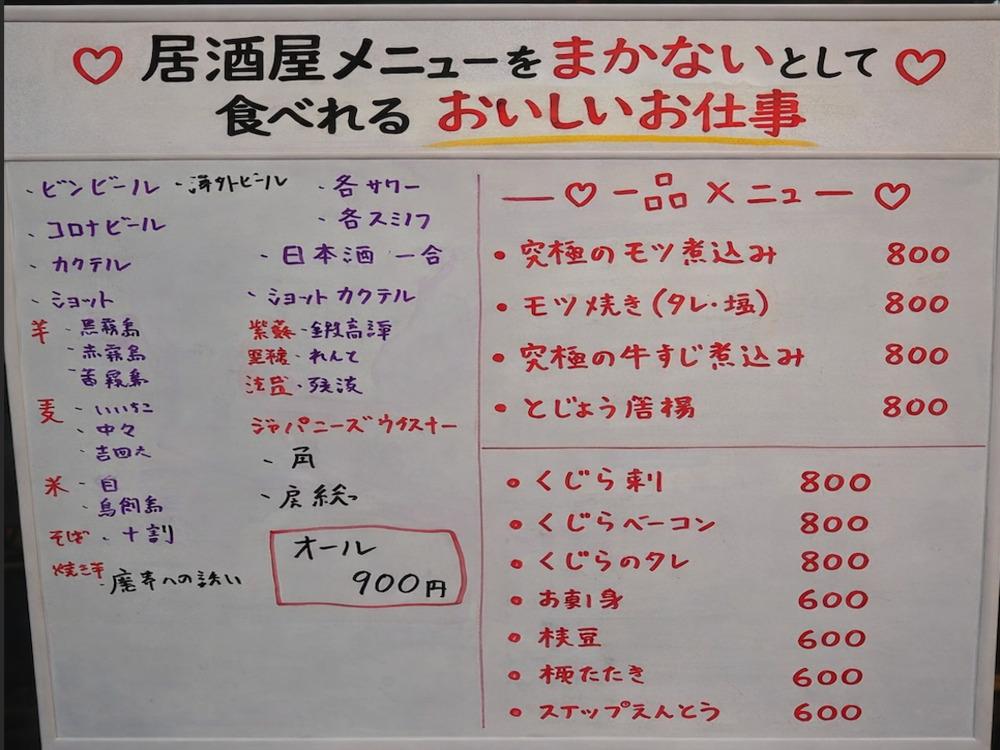 ♡居酒屋メニューをまかないとして♡
食べれるおいしいお仕事
・ビンビール ・海外ビール
・コロナビール
・カクテル
・ショット
・黒霧島
・赤霧島
麦 ・いいちこ
・中々
・吉四六
米 ・白
・鳥飼
そば ・十割
・各サワー
・各スミノフ
・日本酒 一合
・ショットカクテル
紫蘇 ・鍛高譚
黒糖 ・れんと
・残波
ジャパニーズウイスキー
・角
オール
900円
―♡一品メニュー♡
・究極のモツ煮込み 800
・モツ焼き(タレ・塩) 800
・究極の牛すじ煮込み 800
・とじょう唐揚 800
・くじら刺 800
・くじらベーコン 800
・くじらのタレ 800
・お刺身 600
・枝豆 600
・たたき 600
・スナップえんとう 600